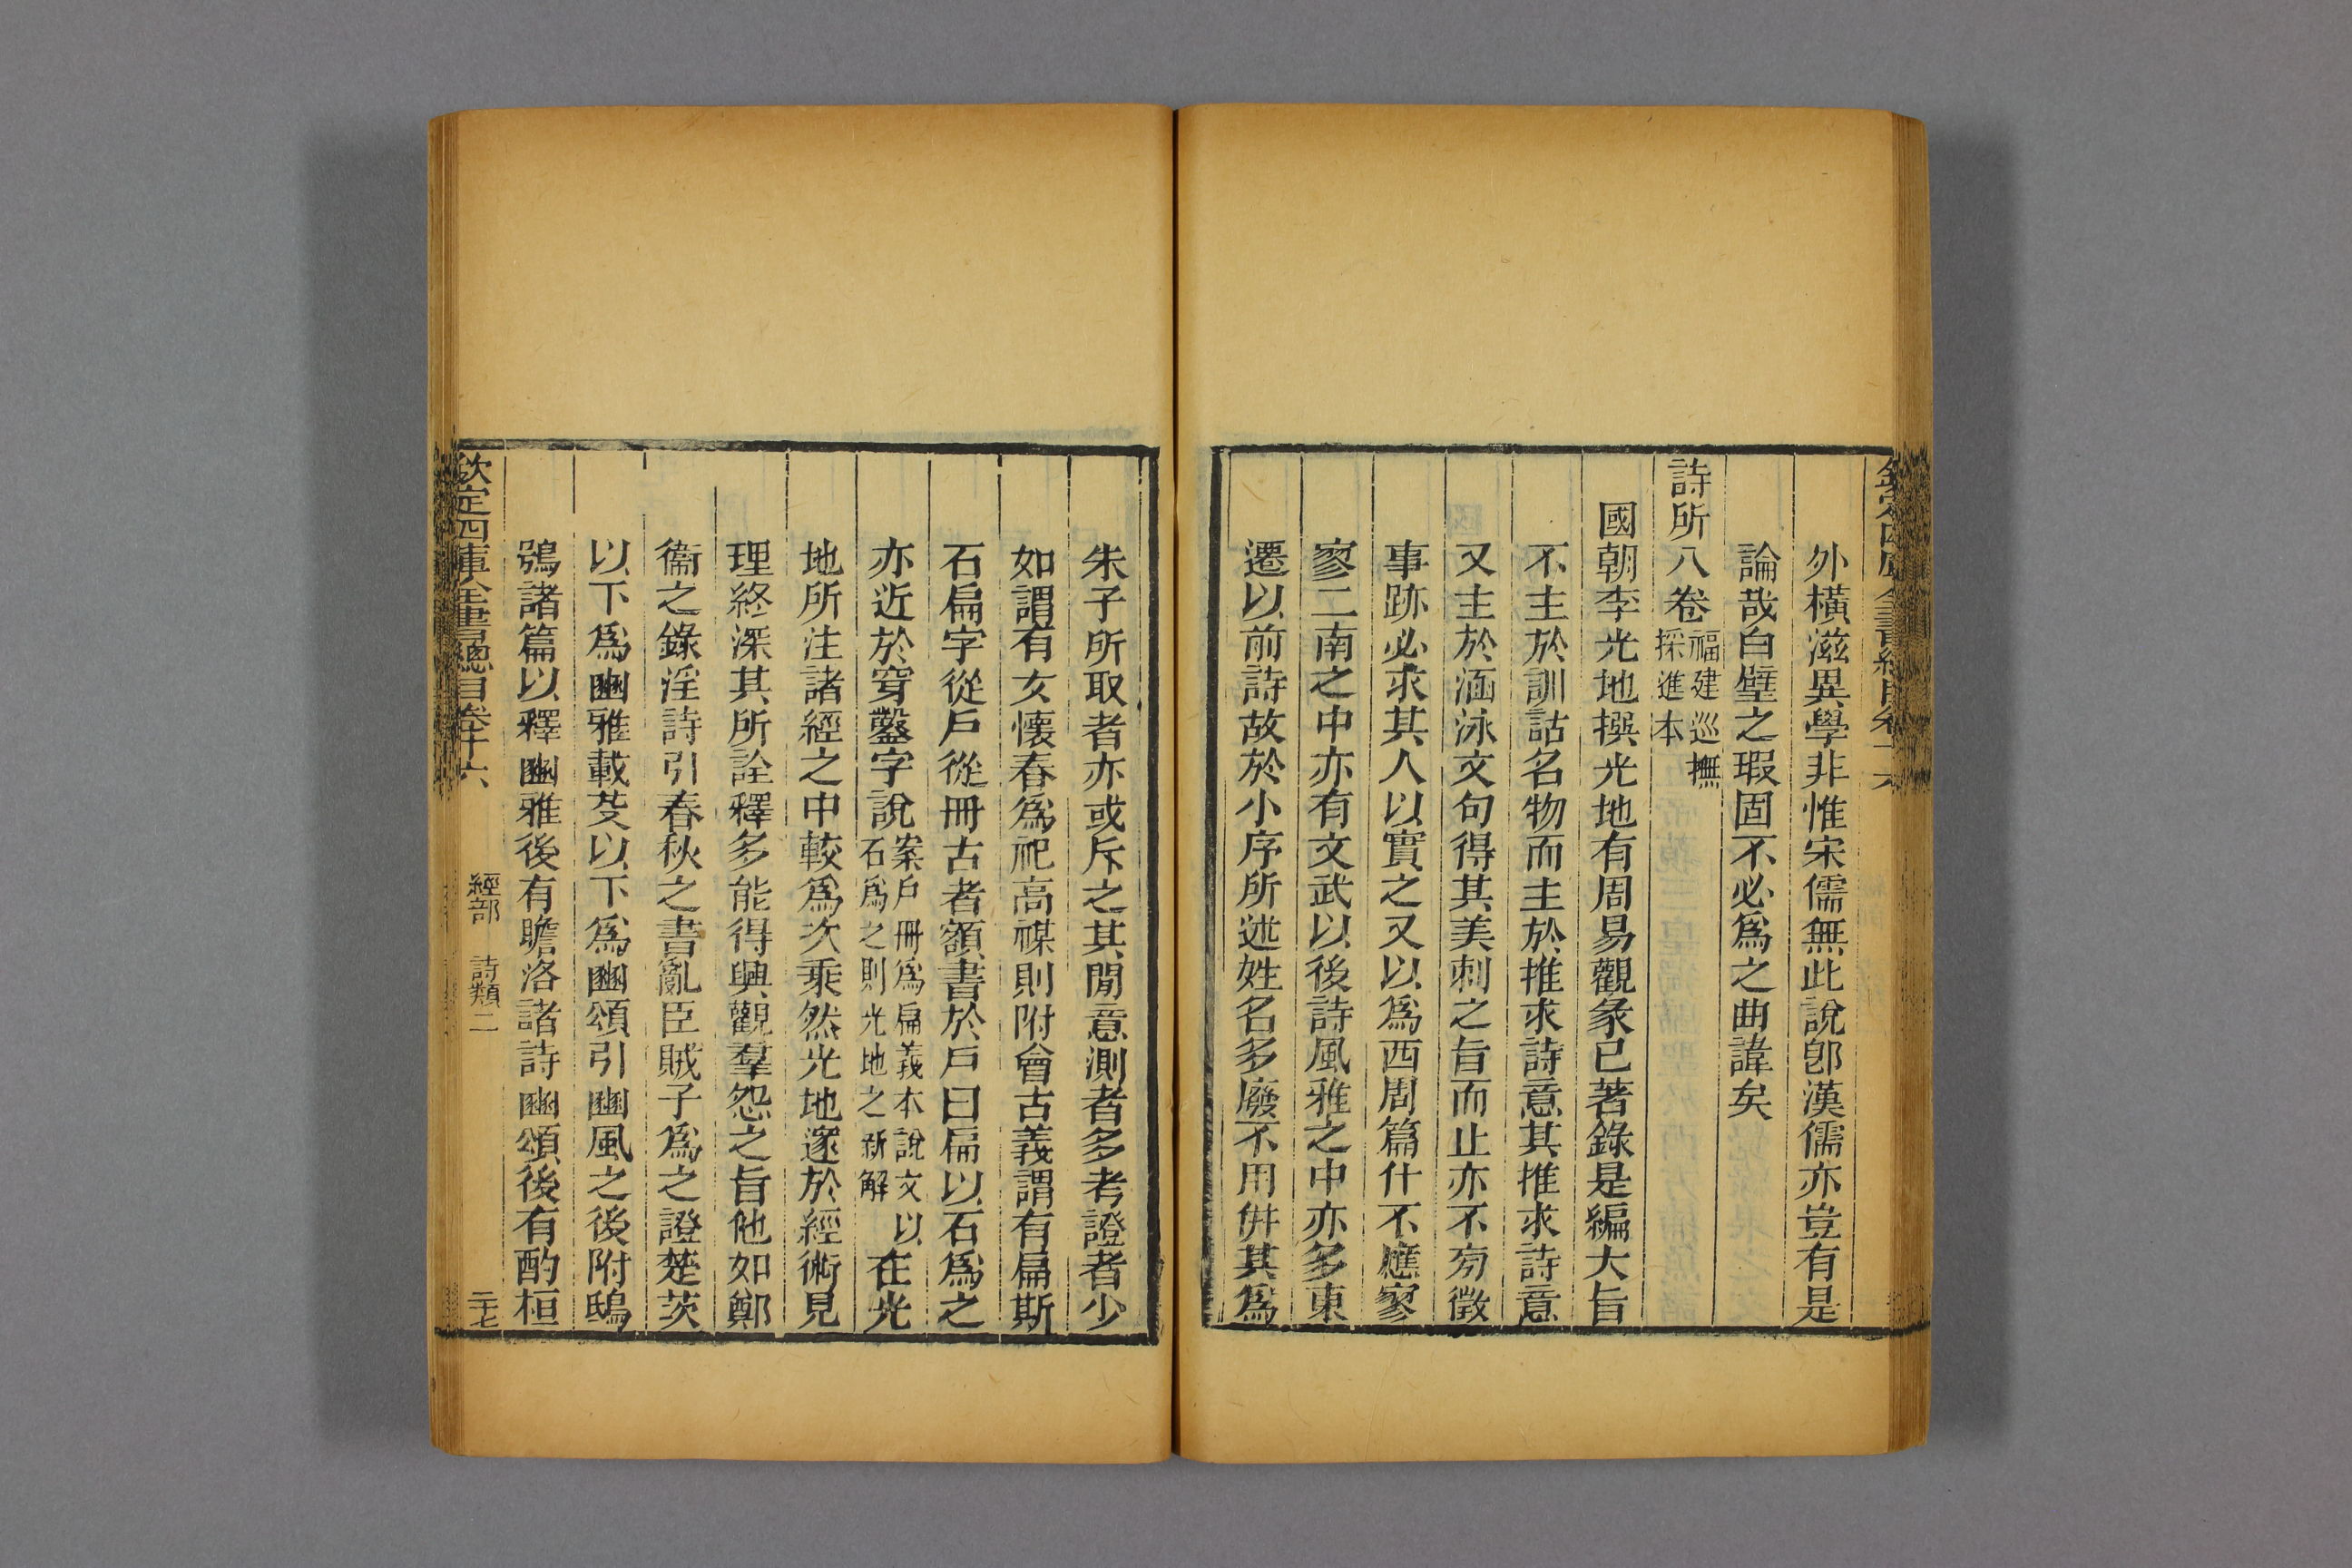 外橫滋異學非惟宋儒無此說卽漢儒亦豈有是
論哉白璧之瑕固不必爲之曲諱矣
詩所八卷福建巡撫採進本
國朝李光地撰光地有周易觀彖已著錄是編大旨
不主於訓詁名物而主於推求詩意其推求詩意
又主於涵泳文句得其美刺之旨而止亦不旁徵
事跡必求其人以實之又以爲西周篇什不應寥
寥二南之中亦有文武以後詩風雅之中亦多東
遷以前詩故於小序所述姓名多廢不用倂其爲
朱子所取者亦或斥之其閒意測者多考證者少
如謂有女懷春爲祀高禖則附會古義謂有扁斯
石扁字從戶從冊古者額書於戶曰扁以石爲之
亦近於穿鑿字說案戶冊爲扁義本說文以石爲之則光地之新解在光
地所注諸經之中較爲次乘然光地邃於經術見
理終深其所詮釋多能得興觀羣怨之旨他如鄭
衞之錄淫詩引春秋之書亂臣賊子爲之證楚茨
以下爲豳雅載芟以下爲豳頌引豳風之後附鴟
鴞諸篇以釋豳雅後有瞻洛諸詩豳頌後有酌桓
欽定四庫全書總目卷十六 經部 詩類二 二七